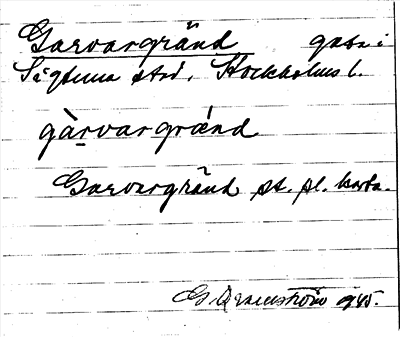 Garvargränd gata i
Sigtuna stad, Stockholms l.
gàrvargrǽnd
Garvargränd st. pl. karta.
G. Qvarnström 1945.